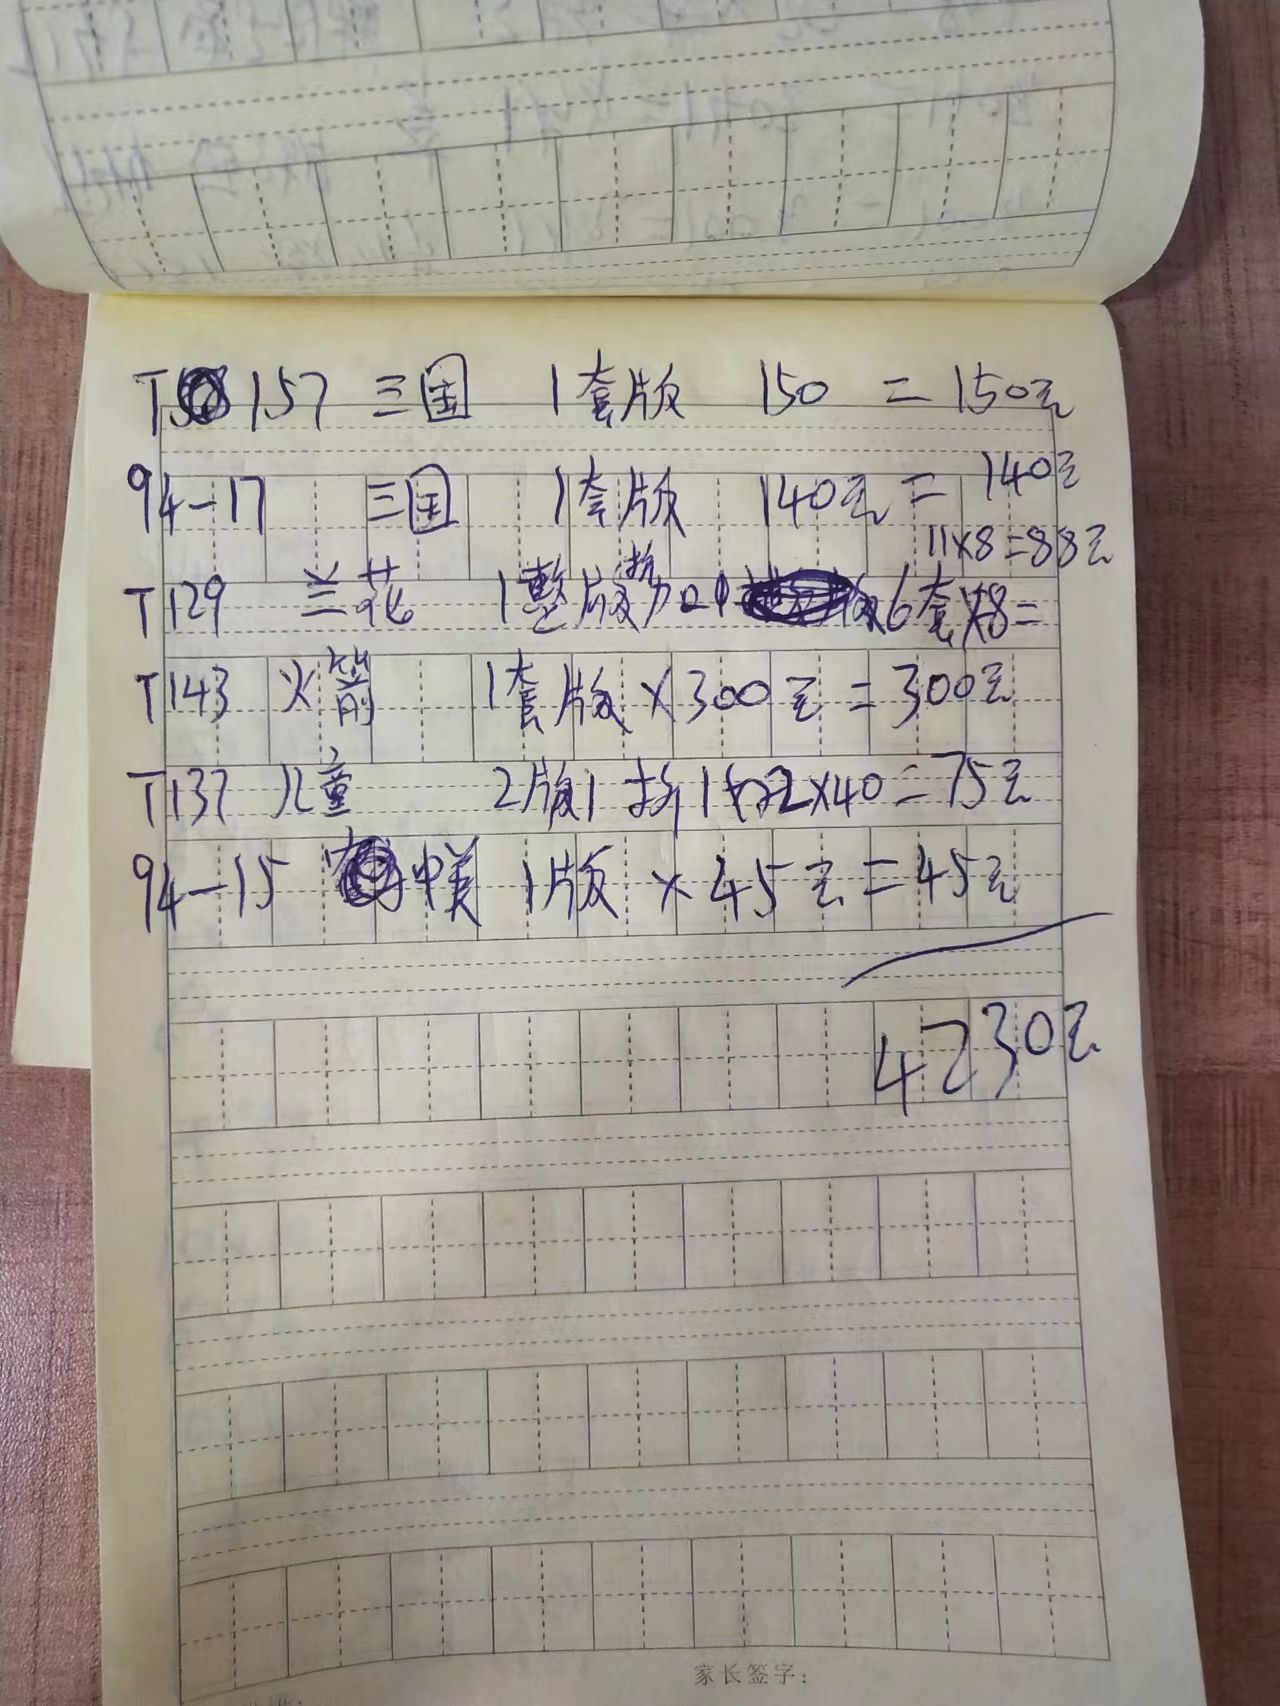 T157 三国 1套版 150 = 150元
94-17 三国 1套版 140元 = 140元
11×8=88元
T129 兰花 1整版 加 6套×8=
T143 火箭 1套版×300元=300元
T137 儿童 2版1折1 2×40=75元
94-15 中美 1版×45元=45元
4230元
家长签字: